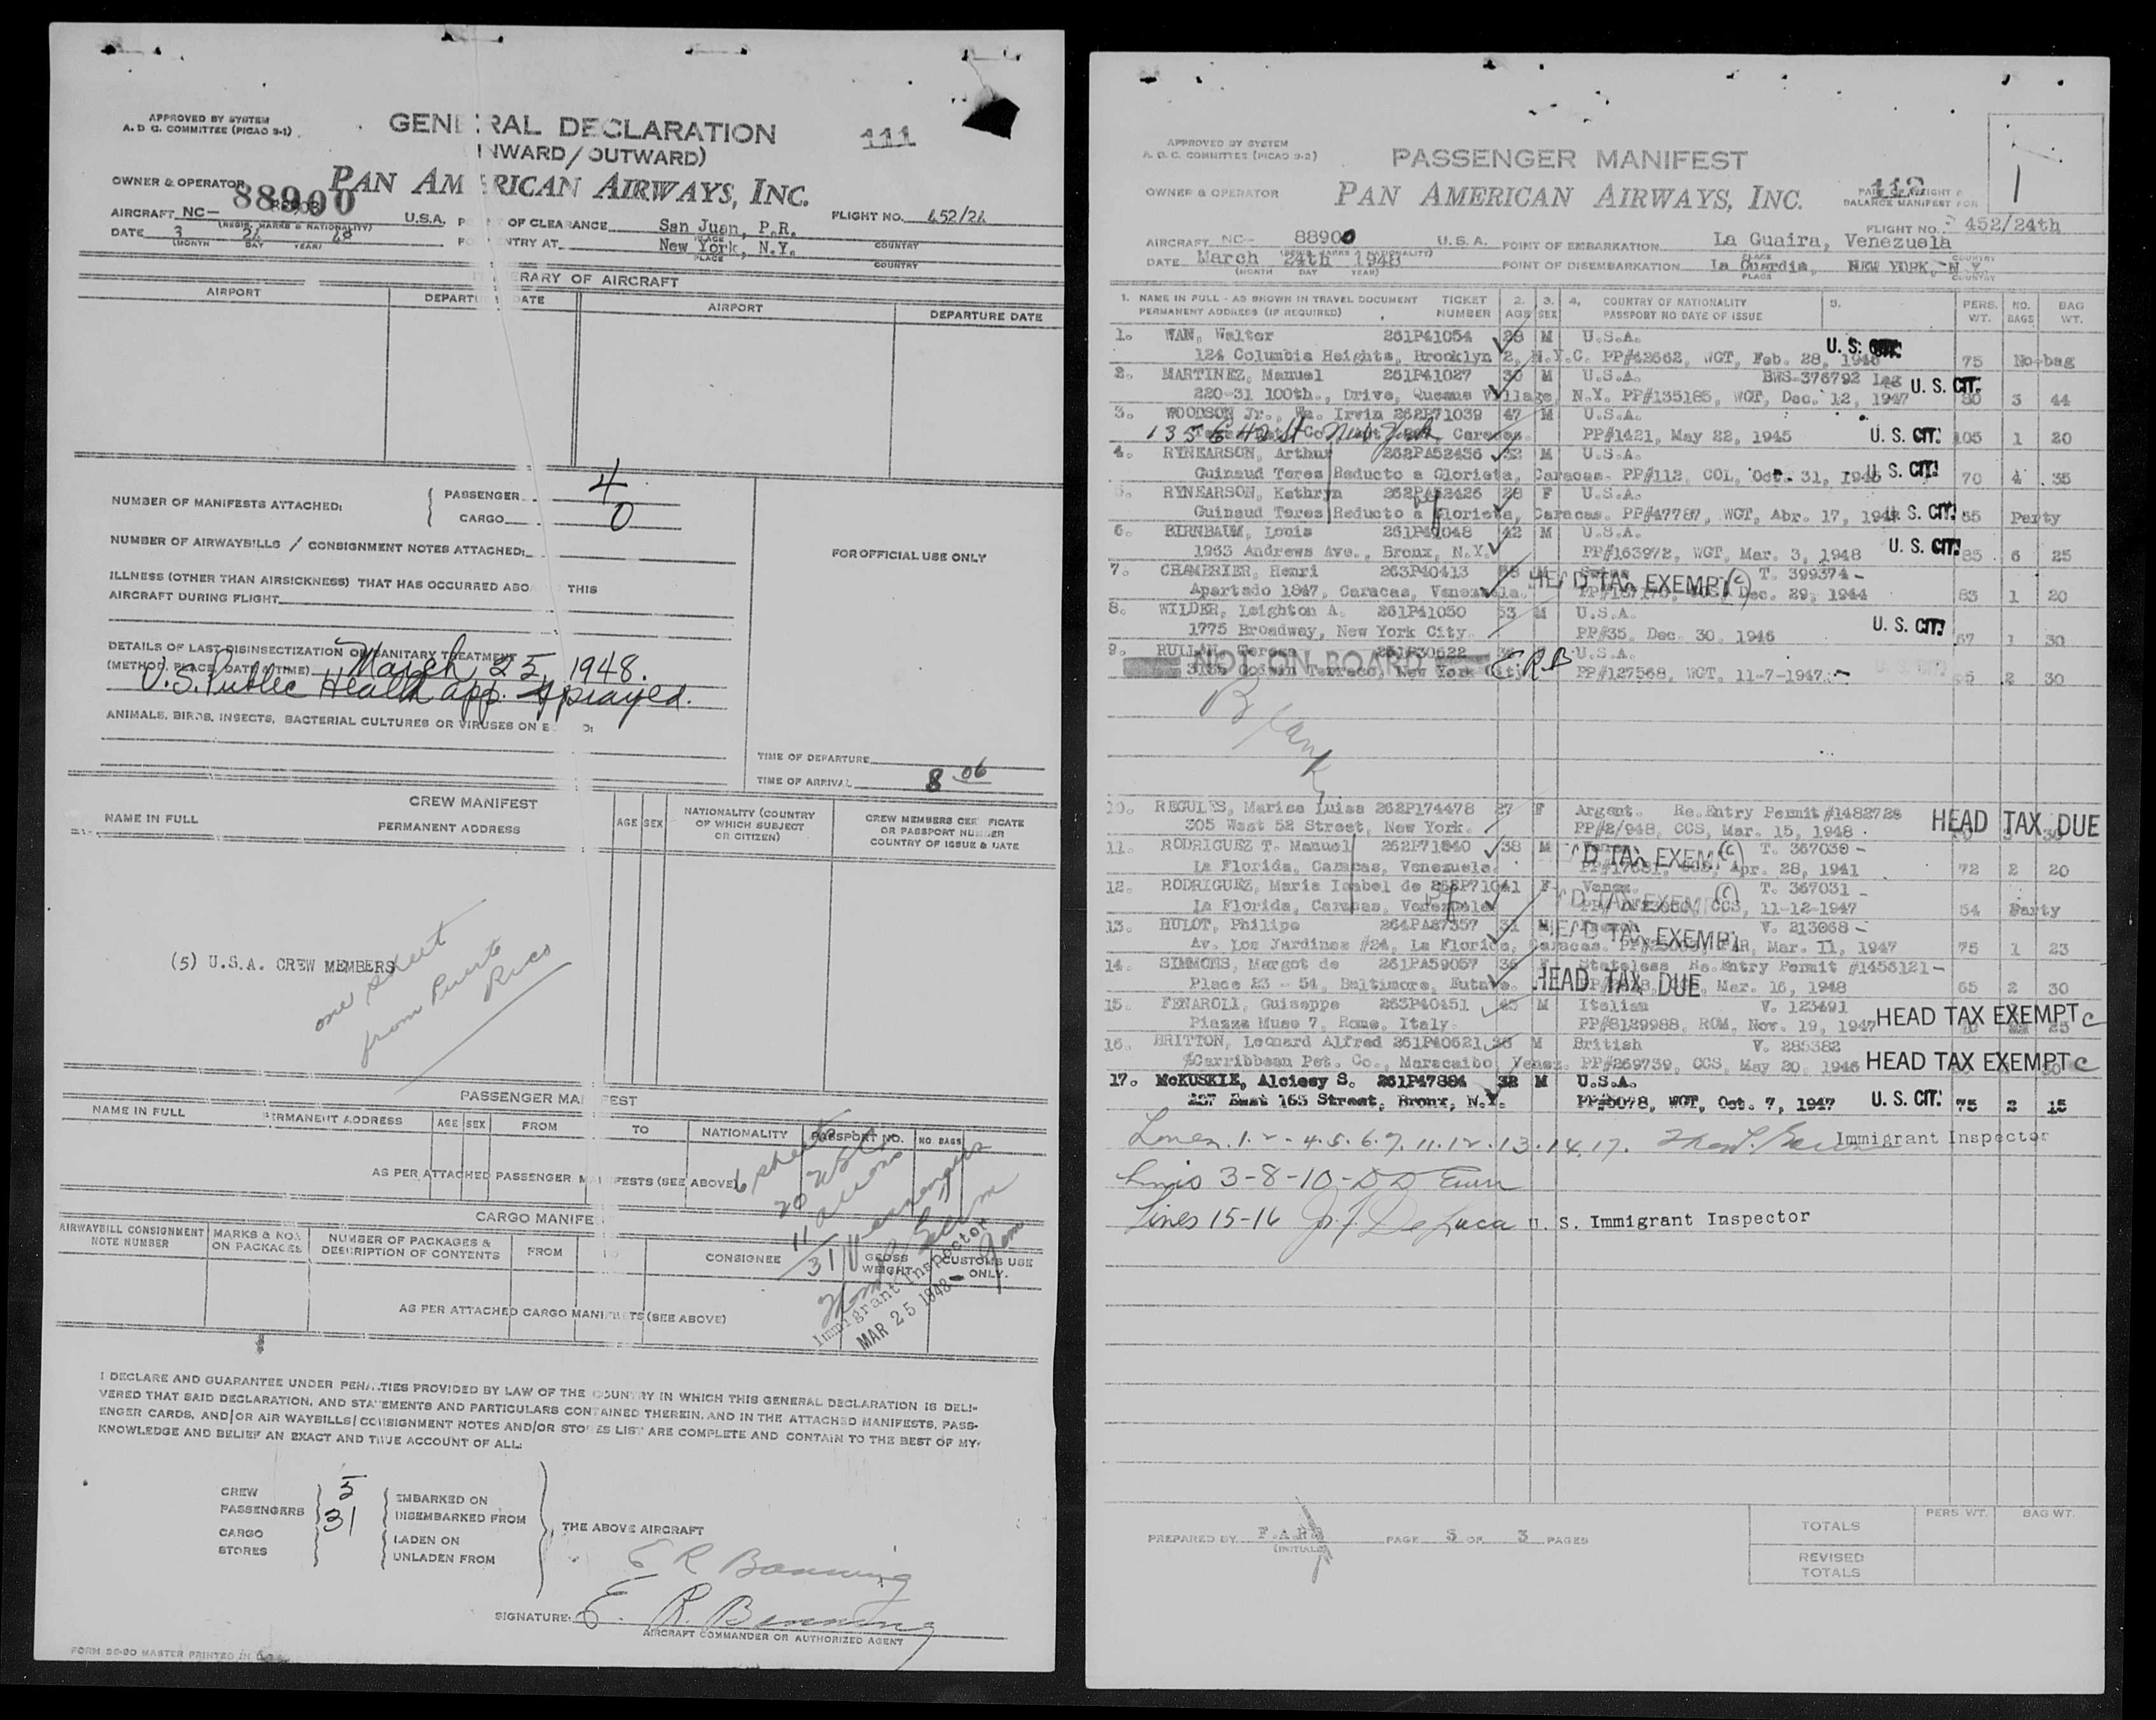 APPROVED BY SYSTEM
A. D. C. COMMITTEE (PICAO 9-1)
GENERAL DECLARATION
(INWARD/OUTWARD)
111
OWNER & OPERATOR
PAN AMERICAN AIRWAYS, INC.
88900
AIRCRAFT NC-
(REGIS. MARKS & NATIONALITY)
U.S.A. POINT OF CLEARANCE San Juan, P.R.
FLIGHT NO. 452/24
DATE 3 24 48
(MONTH DAY YEAR)
PORT ENTRY AT New York, N.Y.
PLACE COUNTRY
ITINERARY OF AIRCRAFT
AIRPORT DEPARTURE DATE AIRPORT DEPARTURE DATE
NUMBER OF MANIFESTS ATTACHED: PASSENGER 4
CARGO 0
NUMBER OF AIRWAYBILLS / CONSIGNMENT NOTES ATTACHED:
FOR OFFICIAL USE ONLY
ILLNESS (OTHER THAN AIRSICKNESS) THAT HAS OCCURRED ABO THIS
AIRCRAFT DURING FLIGHT
DETAILS OF LAST DISINSECTIZATION OR SANITARY TREATMENT
(METHOD, PLACE, DATE & TIME) March 25, 1948.
U.S. Public Health app. Sprayed.
ANIMALS, BIRDS, INSECTS, BACTERIAL CULTURES OR VIRUSES ON
TIME OF DEPARTURE
TIME OF ARRIVAL 8 06
CREW MANIFEST
NAME IN FULL PERMANENT ADDRESS AGE SEX NATIONALITY (COUNTRY OF WHICH SUBJECT OR CITIZEN) CREW MEMBERS CERTIFICATE OR PASSPORT NUMBER COUNTRY OF ISSUE & DATE
(5) U.S.A. CREW MEMBERS
one sheet
from Puerto
Rico
PASSENGER MANIFEST
NAME IN FULL PERMANENT ADDRESS AGE SEX FROM TO NATIONALITY PASSPORT NO. NO. BAGS
AS PER ATTACHED PASSENGER MANIFESTS (SEE ABOVE)
6 sheets
20 USC
11 aliens
31 passengers
Immigrant Inspector
MAR 25 1948
CARGO MANIFE
AIRWAYBILL CONSIGNMENT NOTE NUMBER MARKS & NOS. ON PACKAGES NUMBER OF PACKAGES & DESCRIPTION OF CONTENTS FROM TO CONSIGNEE GROSS WEIGHT CUSTOMS USE ONLY.
AS PER ATTACHED CARGO MANIFESTS (SEE ABOVE)
I DECLARE AND GUARANTEE UNDER PENALTIES PROVIDED BY LAW OF THE COUNTRY IN WHICH THIS GENERAL DECLARATION IS DELI-
VERED THAT SAID DECLARATION, AND STATEMENTS AND PARTICULARS CONTAINED THEREIN, AND IN THE ATTACHED MANIFESTS, PASS-
ENGER CARDS, AND/OR AIR WAYBILLS/CONSIGNMENT NOTES AND/OR STORES LIST ARE COMPLETE AND CONTAIN TO THE BEST OF MY
KNOWLEDGE AND BELIEF AN EXACT AND TRUE ACCOUNT OF ALL:
CREW 5 EMBARKED ON
PASSENGERS 31 DISEMBARKED FROM
THE ABOVE AIRCRAFT
CARGO LADEN ON
STORES UNLADEN FROM
E R Banning
SIGNATURE: E. R. Banning
AIRCRAFT COMMANDER OR AUTHORIZED AGENT
FORM 96-90 MASTER PRINTED IN U.S.A.
APPROVED BY SYSTEM
A. D. C. COMMITTEE (PICAO 9-2)
PASSENGER MANIFEST
1
112
OWNER & OPERATOR
PAN AMERICAN AIRWAYS, INC.
PART OF WEIGHT &
BALANCE MANIFEST FOR
FLIGHT NO. 452/24th
AIRCRAFT NC- 88900 U.S.A. POINT OF EMBARKATION La Guaira, Venezuela
DATE March 24th 1948 POINT OF DISEMBARKATION La Guardia, NEW YORK, N.Y.
(MONTH DAY YEAR) PLACE COUNTRY
1. NAME IN FULL - AS SHOWN IN TRAVEL DOCUMENT TICKET 2. 3. 4. COUNTRY OF NATIONALITY 5. PERS. NO. BAG
PERMANENT ADDRESS (IF REQUIRED) NUMBER AGE SEX PASSPORT NO DATE OF ISSUE WT. BAGS WT.
1. WAN, Walter 261P41054 28 M U.S.A. U.S. CIT.
124 Columbia Heights, Brooklyn 2, N.Y.C. PP#42662, WGT, Feb. 28, 1946 75 No bag
2. MARTINEZ, Manuel 261P41027 30 M U.S.A. BWS-376792 Iag U. S. CIT.
220-31 100th., Drive, Queens Village, N.Y. PP#135185, WGT, Dec. 12, 1947 80 3 44
3. WOODSON Jr., Wm. Irvin 262P71039 47 M U.S.A.
135 E 42 St New York Caracas. PP#1421, May 22, 1945 U. S. CIT. 105 1 20
4. RYNEARSON, Arthur 262PA52436 32 M U.S.A.
Guinaud Teres Reducto a Glorieta, Caracas. PP#112, COL, Oct. 31, 1945 U. S. CIT. 70 4 35
5. RYNEARSON, Kathryn 262PA52426 28 F U.S.A.
Guinaud Teres Reducto a Glorieta, Caracas. PP#47787, WGT, Abr. 17, U. S. CIT. 55 Party
6. BIRNBAUM, Louis 261P41048 42 M U.S.A.
1963 Andrews Ave., Bronx, N.Y. PP#163972, WGT, Mar. 3, 1948 U. S. CIT. 85 6 25
7. CHAMBRIER, Henri 263P40413 M T. 399374 -
HEAD TAX EXEMPT (C)
Apartado 1847, Caracas, Venezuela. Dec. 29, 1944 83 1 20
8. WILDER, Leighton A. 261P41050 53 M U.S.A.
1775 Broadway, New York City. PP#35, Dec. 30, 1946 U. S. CIT. 67 1 30
9. RULLAN, Teresa 261P30622 U.S.A.
NOT ON BOARD E.R.B
Terrace, New York City PP#127568, WGT, 11-7-1947. - 2 30
Blank
10. REGULES, Marisa Luisa 262P174478 27 F Argent. Re.Entry Permit #1482728
305 West 52 Street, New York. PP#2/948, CCS, Mar. 15, 1948 HEAD TAX DUE
11. RODRIGUEZ T. Manuel 262P71040 38 M T. 367030 -
HEAD TAX EXEMPT (C)
La Florida, Caracas, Venezuela. PP#17681, CCS, Apr. 28, 1941 72 2 20
12. RODRIGUEZ, Maria Isabel de 262P71041 F Venez. T. 367031 -
HEAD TAX EXEMPT (C)
La Florida, Caracas, Venezuela CCS, 11-12-1947 54 Party
13. HULOT, Philipe 264PA87357 31 M French V. 213068 -
HEAD TAX EXEMPT
Av. Los Jardines #24, La Florida, Caracas. PAR, Mar. 11, 1947 75 1 23
14. SIMMONS, Margot de 261PA59057 36 F Stateless Re.Entry Permit #1456121 -
Place 23 - 54, Baltimore, Eutaw. HEAD TAX DUE Mar. 16, 1948 65 2 30
15. FENAROLI, Guiseppe 263P40451 45 M Italian V. 123491
Piazza Muse 7, Rome, Italy. PP#8129988, ROM, Nov. 19, 1947 HEAD TAX EXEMPT C 25
16. BRITTON, Leonard Alfred 261P40621 36 M British V. 285382
%Carribbean Pet. Co., Maracaibo Venez. PP#269739, CCS, May 20, 1946 HEAD TAX EXEMPT C
17. McKUSKIE, Alciesy S. 261P47894 32 M U.S.A.
237 East 165 Street, Bronx, N.Y. PP#5078, WGT, Oct. 7, 1947 U. S. CIT. 75 2 15
Lines 1.2.4.5.6.7.11.12.13.14.17. Immigrant Inspector
Lines 3-8-10- D D
Lines 15-16 De Luca U. S. Immigrant Inspector
PREPARED BY F.A.R. PAGE 3 OF 3 PAGES
(INITIALS)
PERS WT. BAG WT.
TOTALS
REVISED
TOTALS